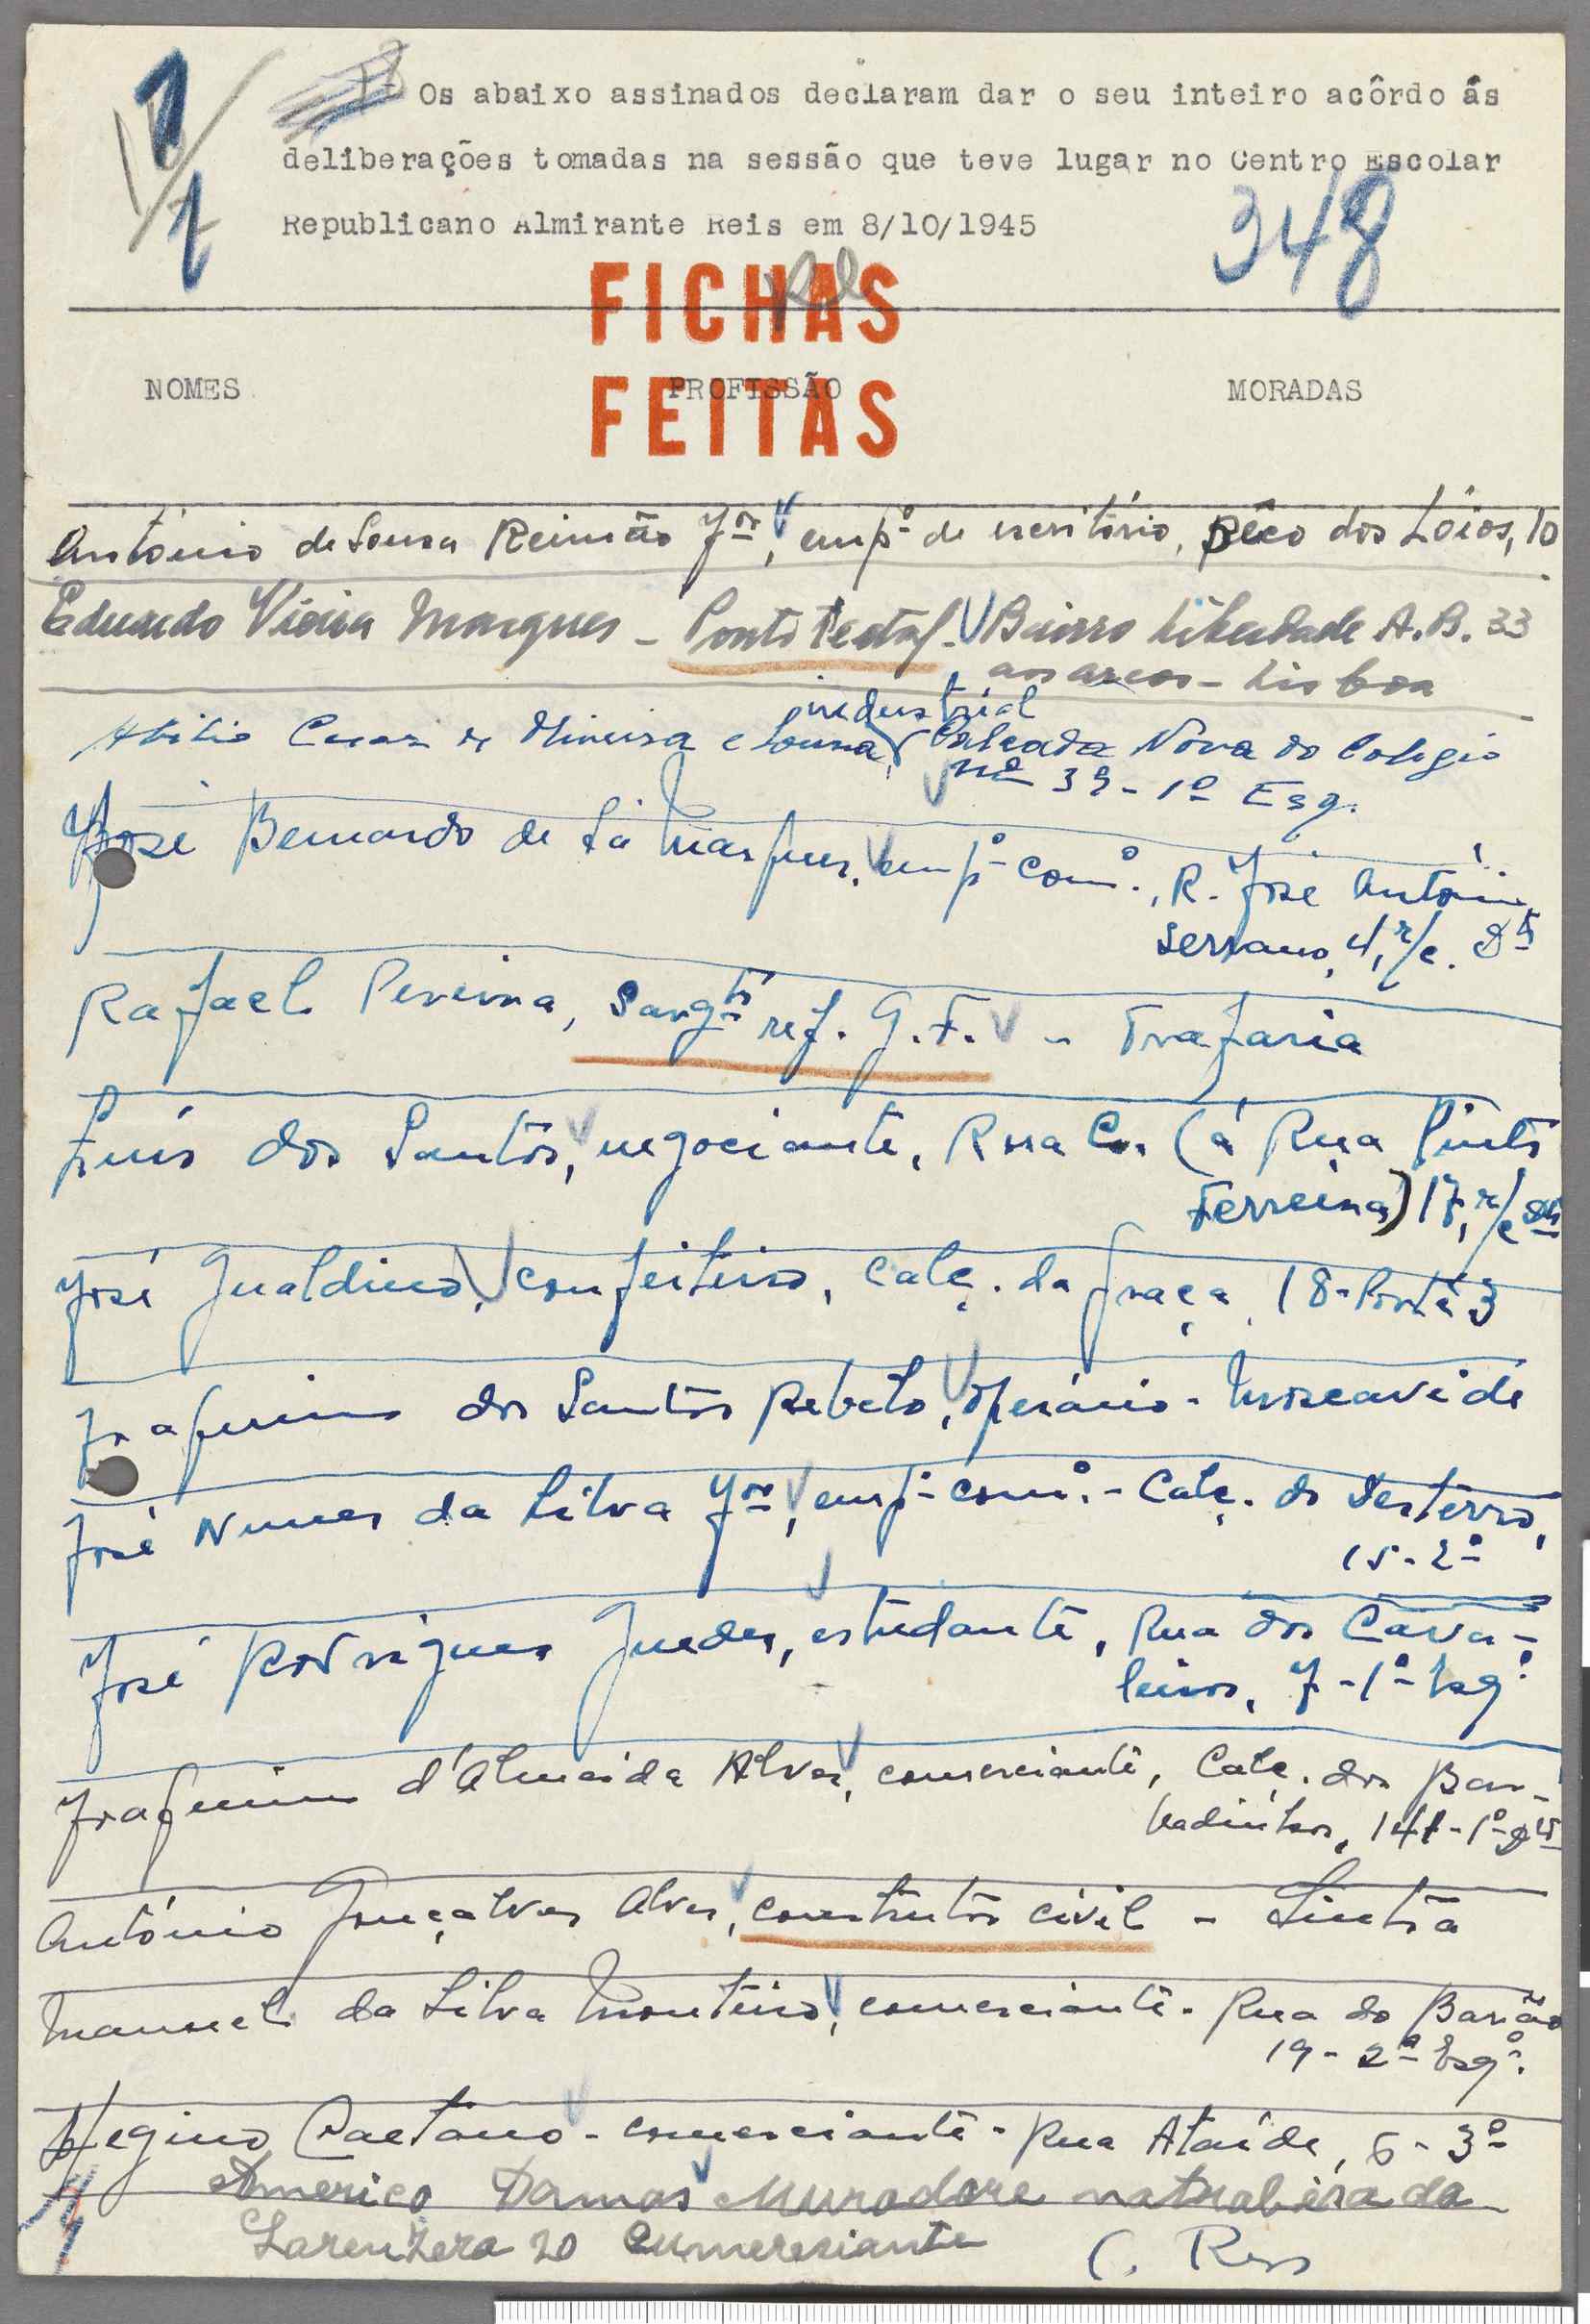 1
1
Os abaixo assinados declaram dar o seu inteiro acôrdo ás
deliberações tomadas na sessão que teve lugar no Centro Escolar
Republicano Almirante Reis em 8/10/1945
348
FICHAS
FEITAS
NOMES PROFISSÃO MORADAS
António de Sousa Reimão Jor, empº de escritório, Bêco dos Lóios, 10
Eduardo Vieira Marques - Bairro Liberdade A.B. 33
aos arcos - Lisboa
industrial
Abilio Cesar de Oliveira e Sousa, Calçada Nova do Colegio
nº 39 - 1º Esq.
José Bernardo de Sá Marques, empº comº., R. José António
Serrano, 4, r/c. Dtº
Rafael Pereira, Sargtº ref. G.F. - Trafaria
Luís dos Santos, negociante, Rua C. (á Rua Pinto
Ferreira) 17, r/c Dtº
José Gualdino, confeiteiro, Calç. da Graça, 18-Porta 3
Joaquim dos Santos Rebelo, operário - Moscavide
José Nunes da Silva Jor, empº comº. - Calç. do Destêrro,
15-2º
José Rodrigues Guedes, estudante, Rua dos Cava-
leiros, 7-1º Esqº
Joaquim d'Almeida Alves, comerciante, Calç. dos Bar-
badinhos, 141-1º Dtº
António Gonçalves Alves, construtor civil - Sintra
Manuel da Silva Monteiro, comerciante - Rua do Barão
19-2º Esqº.
Higino Caetano - comerciante - Rua Ataíde, 6-3º
Americo Damas
20 Cumerciante C.